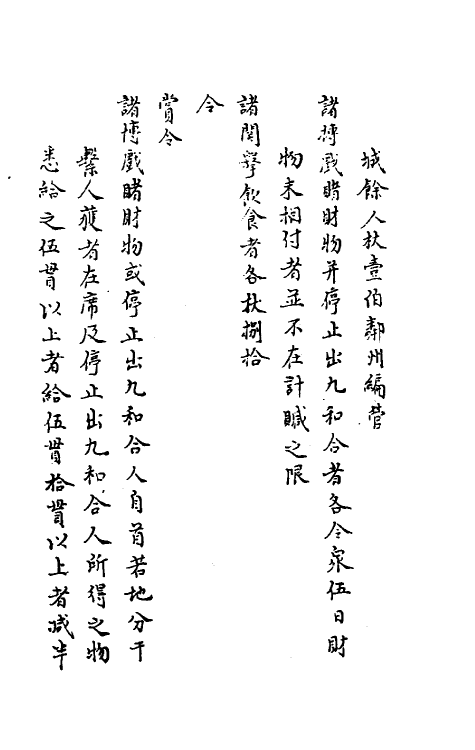 城餘人杖壹伯鄰州編管
諸博戲賭財物并停止出九和合者各令衆伍日財
物未相付者並不在計贓之限
諸関撲飲食者各杖捌拾
令
賞令
諸博戲賭財物或停止出九和合人自首若地分干
繫人獲者在席及停止出九和合人所得之物
悉給之伍貫以上者給伍貫拾貫以上者減半